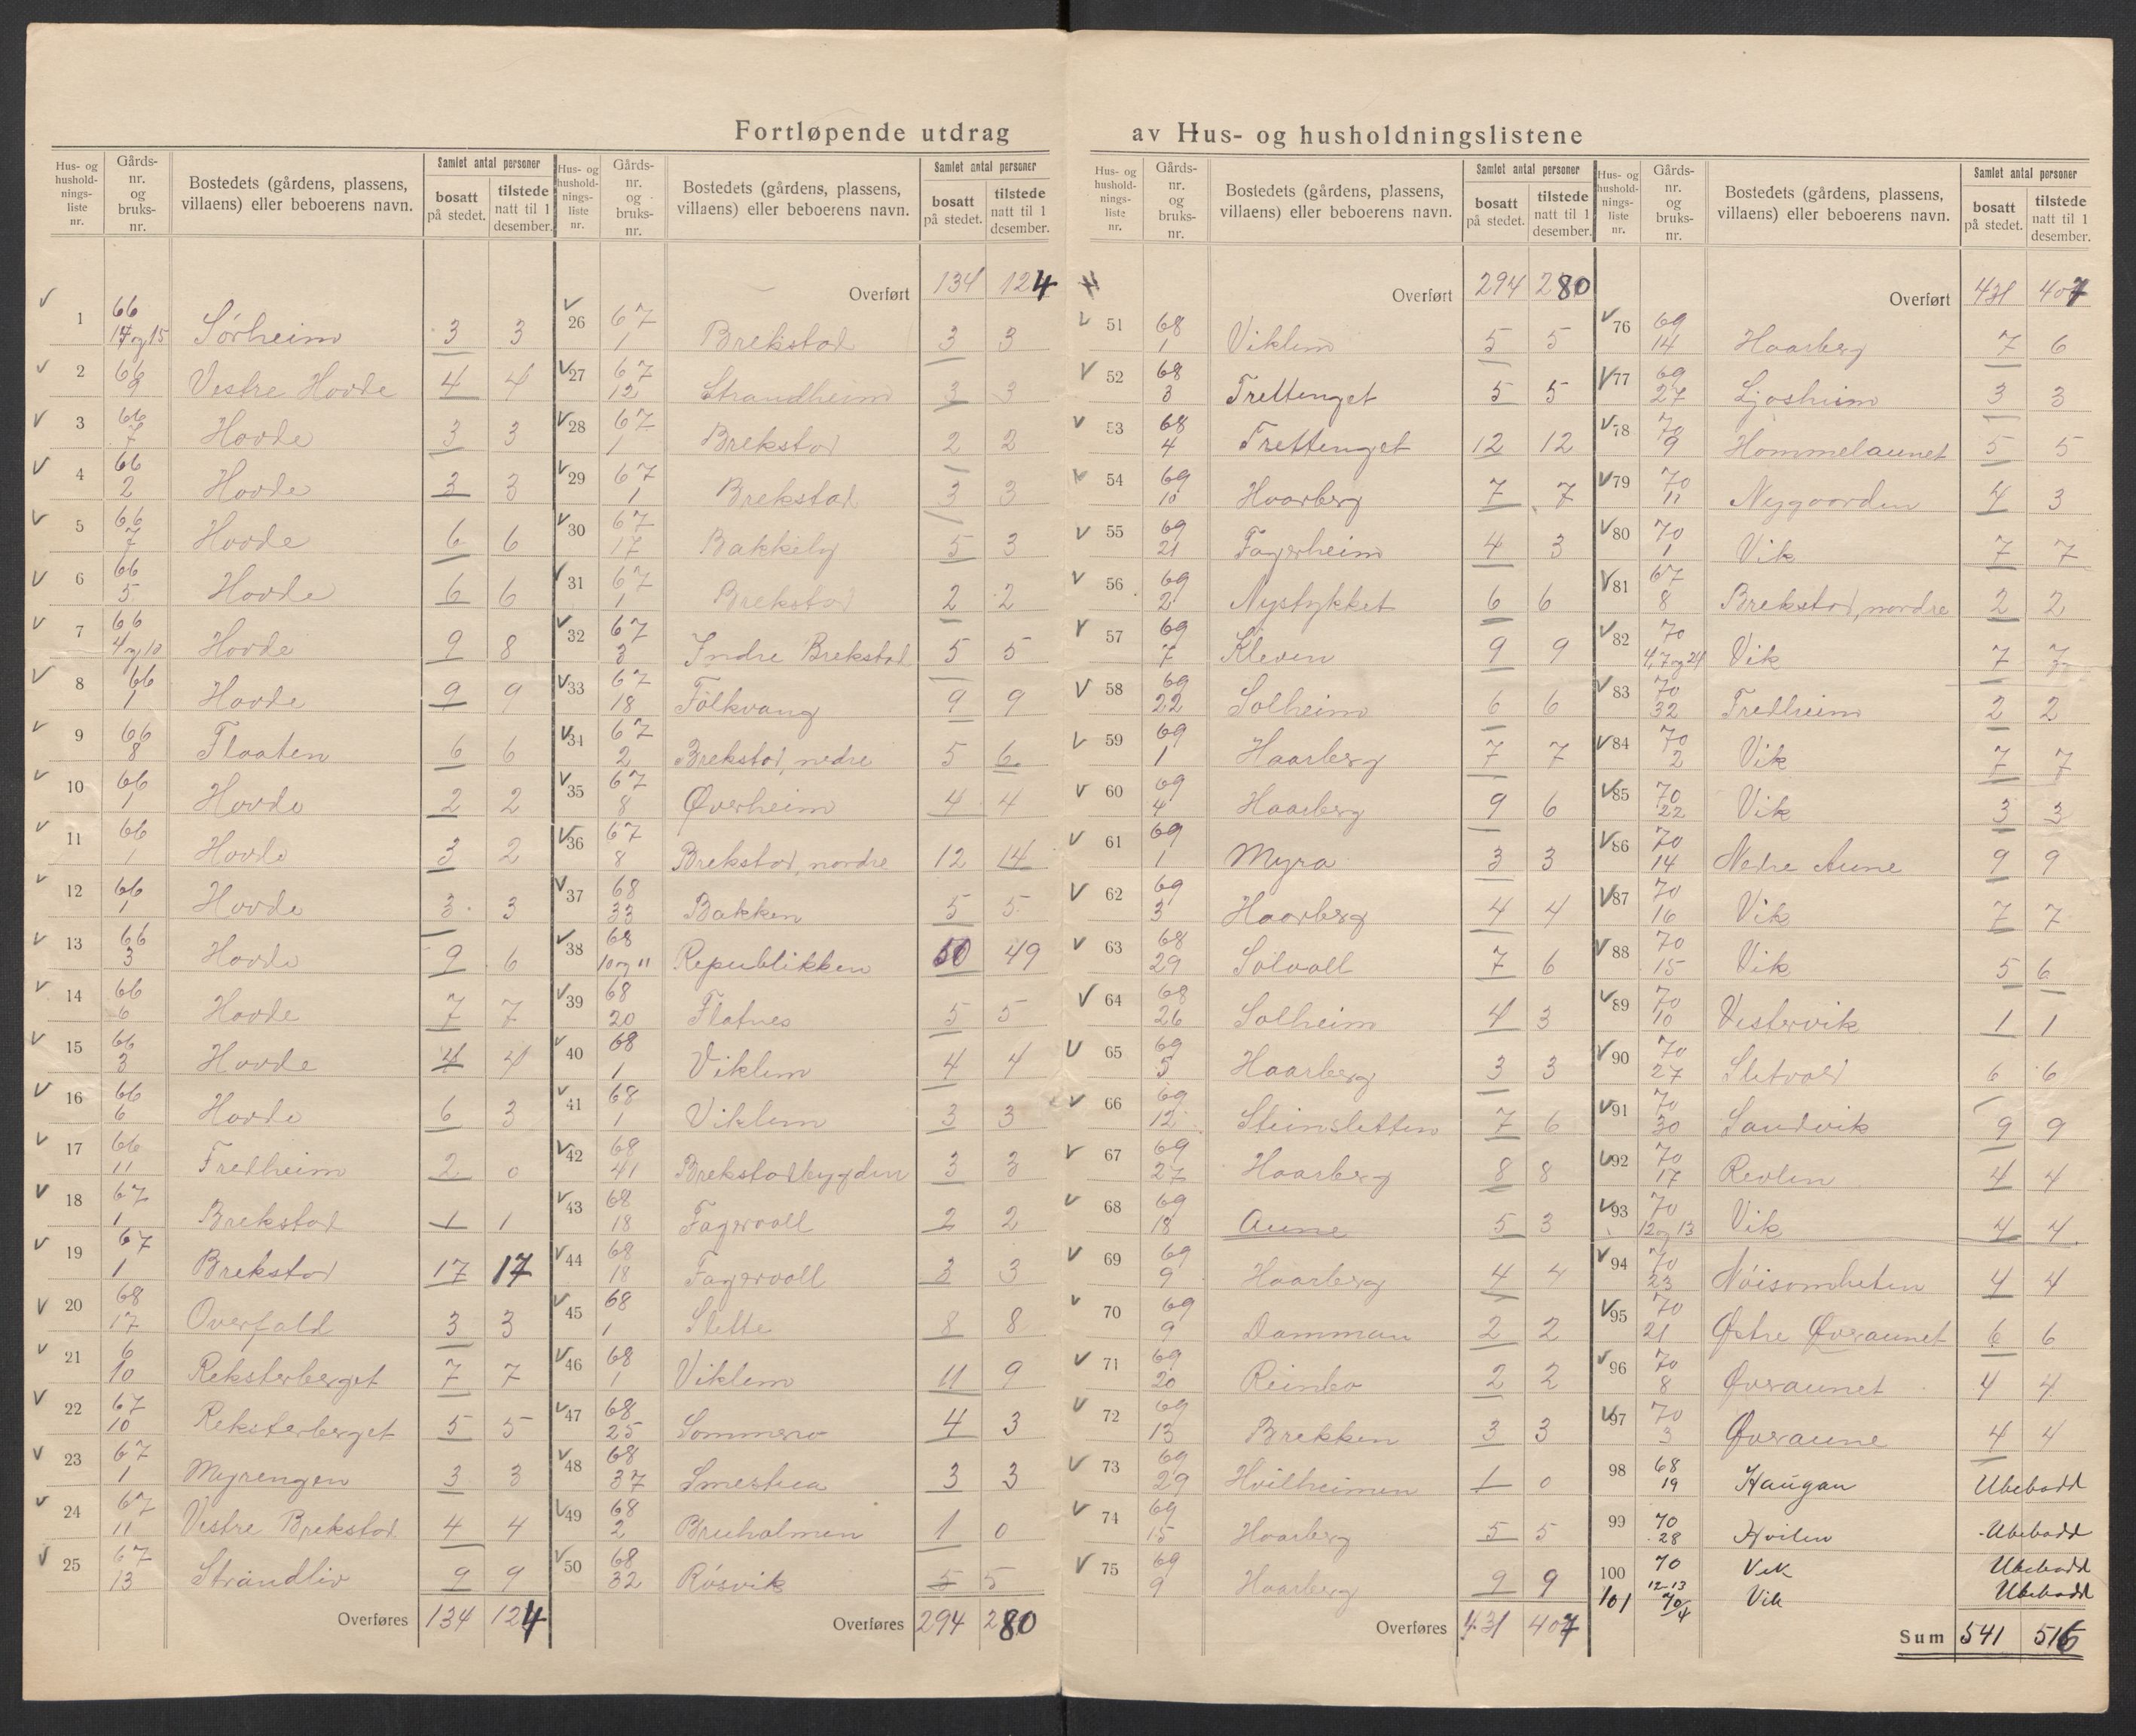 Fortløpende utdrag av Hus- og husholdningslistene
Hus- og husholdningsliste nr. | Gårdsnr. og bruksnr. | Bostedets (gårdens, plassens, villaens) eller beboerens navn. | Samlet antal personer bosatt på stedet. | tilstede natt til 1 desember.
1 66 17 og 15 Sørheim 3 3
2 66 9 Vestre Hovde 4 4
3 66 7 Hovde 3 3
4 66 2 Hovde 3 3
5 66 7 Hovde 6 6
6 66 5 Hovde 6 6
7 66 4 og 10 Hovde 9 8
8 66 1 Hovde 9 9
9 66 8 Flaaten 6 6
10 66 1 Hovde 2 2
11 66 1 Hovde 3 2
12 66 1 Hovde 3 3
13 66 3 Hovde 9 6
14 66 6 Hovde 7 7
15 66 3 Hovde 4 4
16 66 6 Hovde 6 3
17 66 11 Fredheim 2 0
18 67 1 Brekstad 1 1
19 67 1 Brekstad 17 17
20 68 17 Overfald 3 3
21 6 10 Reksterberget 7 7
22 67 10 Reksterberget 5 5
23 67 1 Myrengen 3 3
24 67 11 Vestre Brekstad 4 4
25 67 13 Strandliv 9 9
Overføres 134 124
Hus- og husholdningsliste nr. | Gårdsnr. og bruksnr. | Bostedets (gårdens, plassens, villaens) eller beboerens navn. | Samlet antal personer bosatt på stedet. | tilstede natt til 1 desember.
Overført 134 124
26 67 1 Brekstad 3 3
27 67 12 Strandheim 3 3
28 67 1 Brekstad 2 2
29 67 1 Brekstad 3 3
30 67 17 Bakkely 5 3
31 67 1 Brekstad 2 2
32 67 3 Indre Brekstad 5 5
33 67 18 Folkvang 9 9
34 67 2 Brekstad, nedre 5 6
35 67 8 Øverheim 4 4
36 67 8 Brekstad, nordre 12 14
37 68 33 Bakken 5 5
38 68 10 og 11 Republikken 50 49
39 68 20 Flatnes 5 5
40 68 1 Viklem 4 4
41 68 1 Viklem 3 3
42 68 41 Brekstadbygden 3 3
43 68 18 Fagervoll 2 2
44 68 18 Fagervoll 3 3
45 68 1 Slette 8 8
46 68 1 Viklem 11 9
47 68 25 Sommero 4 3
48 68 37 3 3
49 68 2 Bruholmen 1 0
50 68 32 Røsvik 5 5
Overføres 294 280
Hus- og husholdningsliste nr. | Gårdsnr. og bruksnr. | Bostedets (gårdens, plassens, villaens) eller beboerens navn. | Samlet antal personer bosatt på stedet. | tilstede natt til 1 desember.
Overført 294 280
51 68 1 Viklem 5 5
52 68 3 Trettenget 5 5
53 68 4 Trettenget 12 12
54 69 10 Haarberg 7 7
55 69 21 Fagerheim 4 3
56 69 2 Nystykket 6 6
57 69 7 Kleven 9 9
58 69 22 Solheim 6 6
59 69 1 Haarberg 7 7
60 69 4 Haarberg 9 6
61 69 1 Myra 3 3
62 69 3 Haarberg 4 4
63 68 29 Solvoll 7 6
64 68 26 Solheim 4 3
65 69 5 Haarberg 3 3
66 69 12 Steinsletten 7 6
67 69 27 Haarberg 8 8
68 69 18 Aune 5 3
69 69 9 Haarberg 4 4
70 69 9 Damman 2 2
71 69 20 Reinbo 2 2
72 69 13 Brekken 3 3
73 69 29 Hvilheimen 1 0
74 69 15 Haarberg 5 5
75 69 9 Haarberg 9 9
Overføres 431 407
Hus- og husholdningsliste nr. | Gårdsnr. og bruksnr. | Bostedets (gårdens, plassens, villaens) eller beboerens navn. | Samlet antal personer bosatt på stedet. | tilstede natt til 1 desember.
Overført 431 407
76 69 14 Haarberg 7 6
77 69 27 Ljosheim 3 3
78 70 9 Hommelaunet 5 5
79 70 11 Nygaarden 4 3
80 70 1 Vik 7 7
81 67 8 Brekstad, nordre 2 2
82 70 4,7 og 24 Vik 7 7
83 70 32 Fredheim 2 2
84 70 2 Vik 7 7
85 70 22 Vik 3 3
86 70 14 Nedre Aune 9 9
87 70 16 Vik 7 7
88 70 15 Vik 5 6
89 70 10 Vestervik 1 1
90 70 27 Sletvold 6 6
91 70 30 Sandvik 9 9
92 70 17 Revlen 4 4
93 70 12 og 13 Vik 4 4
94 70 23 Nøisomheten 4 4
95 70 21 Østre Øveraunet 6 6
96 70 8 Øveraunet 4 4
97 70 3 Øveraune 4 4
98 68 19 Haugan Ubebodd
99 70 28 Hvilen Ubebodd
100 70 12-13 Vik Ubebodd
101 70/4 Vik Ubebodd
Sum 541 516